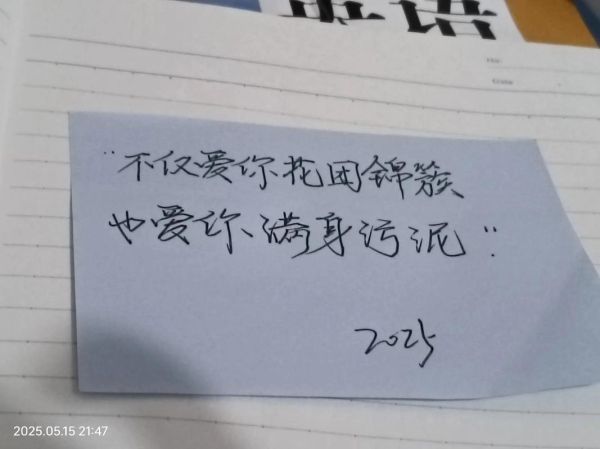 英语
"不仅爱你花团锦簇
也爱你满身污泥"
2025
2025.05.15 21:47